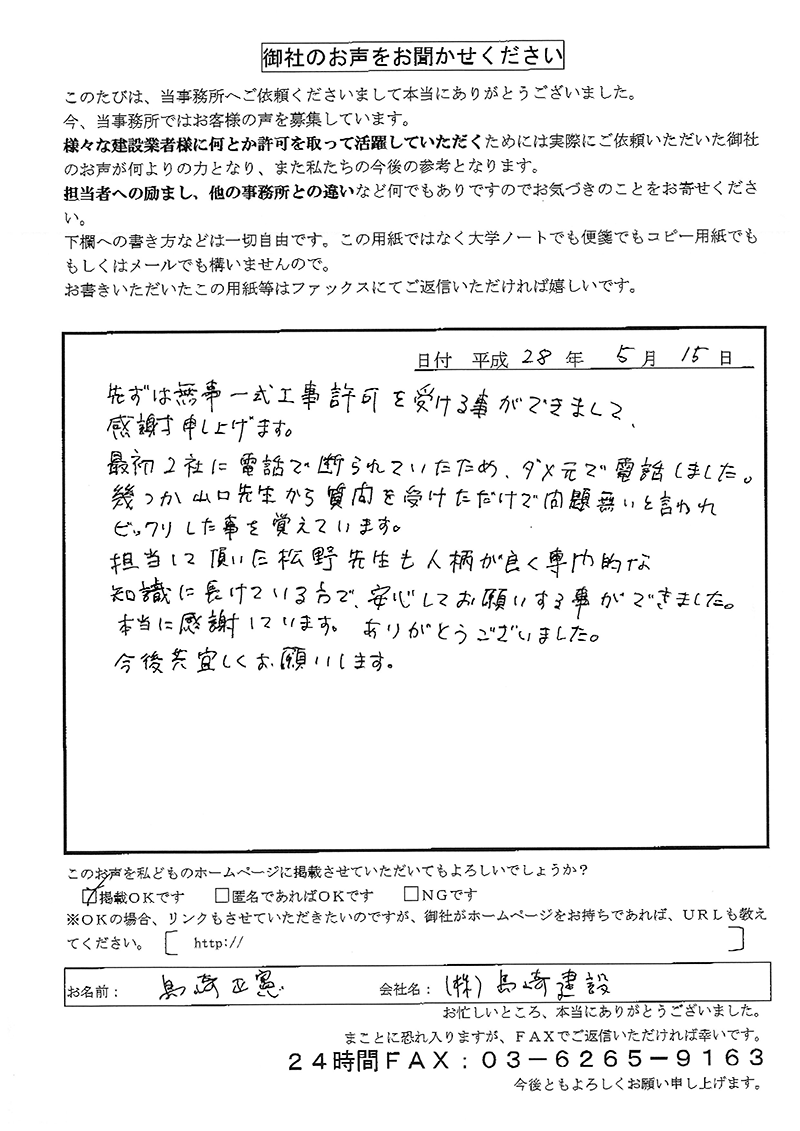 御社のお声をお聞かせください
このたびは、当事務所へご依頼くださいまして本当にありがとうございました。
今、当事務所ではお客様の声を募集しています。
様々な建設業者様に何とか許可を取って活躍していただくためには実際にご依頼いただいた御社
のお声が何よりの力となり、また私たちの今後の参考となります。
担当者への励まし、他の事務所との違いなど何でもありですのでお気づきのことをお寄せくださ
い。
下欄への書き方などは一切自由です。この用紙ではなく大学ノートでも便箋でもコピー用紙でも
もしくはメールでも構いませんので。
お書きいただいたこの用紙等はファックスにてご返信いただければ嬉しいです。
日付 平成 28 年 5 月 15 日
先ずは無事一式工事許可を受ける事ができまして、
感謝申し上げます。
最初2社に電話で断られていたため、ダメ元で電話しました。
幾つか山口先生から質問を受けただけで問題無いと言われ
ビックリした事を覚えています。
担当して頂いた松野先生も人柄が良く専門的な
知識に長けている方で、安心してお願いする事ができました。
本当に感謝しています。ありがとうございました。
今後共宜しくお願いします。
このお声を私どものホームページに掲載させていただいてもよろしいでしょうか？
☑掲載OKです □匿名であればOKです □NGです
※OKの場合、リンクもさせていただきたいのですが、御社がホームページをお持ちであれば、URLも教え
てください。[ http:// ]
お名前： 島崎正憲 会社名：(株)島崎建設
お忙しいところ、本当にありがとうございました。
まことに恐れ入りますが、FAXでご返信いただければ幸いです。
24時間FAX：03－6265－9163
今後ともよろしくお願い申し上げます。